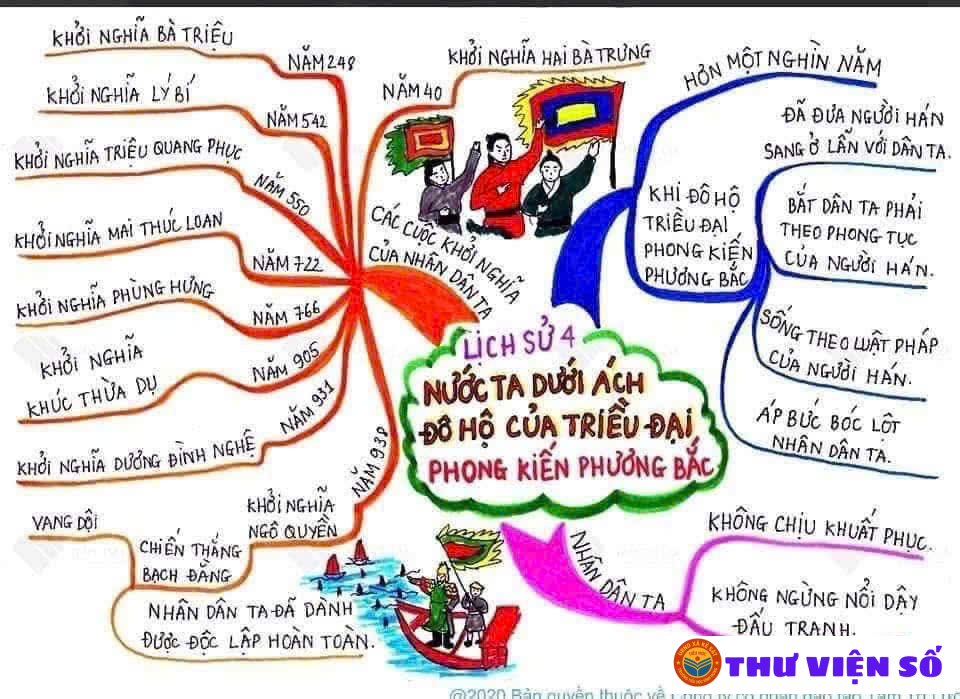 KHỞI NGHĨA BÀ TRIỆU
NĂM 248
KHỞI NGHĨA LÝ BÍ
NĂM 542
KHỞI NGHĨA TRIỆU QUANG PHỤC
NĂM 550
KHỞI NGHĨA MAI THÚC LOAN
NĂM 722
KHỞI NGHĨA PHÙNG HƯNG
NĂM 766
KHỞI NGHĨA
KHÚC THỪA DỤ
NĂM 905
KHỞI NGHĨA DƯƠNG ĐÌNH NGHỆ
NĂM 931
NĂM 938
KHỞI NGHĨA
NGÔ QUYỀN
VANG DỘI
CHIẾN THẮNG
BẠCH ĐẰNG
NHÂN DÂN TA ĐÃ DÀNH
ĐƯỢC ĐỘC LẬP HOÀN TOÀN.
KHỞI NGHĨA HAI BÀ TRƯNG
NĂM 40
CÁC CUỘC KHỞI NGHĨA
CỦA NHÂN DÂN TA
LỊCH SỬ 4
NƯỚC TA DƯỚI ÁCH
ĐÔ HỘ CỦA TRIỀU ĐẠI
PHONG KIẾN PHƯƠNG BẮC
HƠN MỘT NGHÌN NĂM
KHI ĐÔ HỘ
TRIỀU ĐẠI
PHONG KIẾN
PHƯƠNG BẮC
ĐÃ ĐƯA NGƯỜI HÁN
SANG Ở LẪN VỚI DÂN TA.
BẮT DÂN TA PHẢI
THEO PHONG TỤC
CỦA NGƯỜI HÁN.
SỐNG THEO LUẬT PHÁP
CỦA NGƯỜI HÁN.
ÁP BỨC BÓC LỘT
NHÂN DÂN TA.
NHÂN DÂN TA
KHÔNG CHỊU KHUẤT PHỤC.
KHÔNG NGỪNG NỔI DẬY
ĐẤU TRANH.
THƯ VIỆN SỐ
@2020 Bản quyền thuộc về